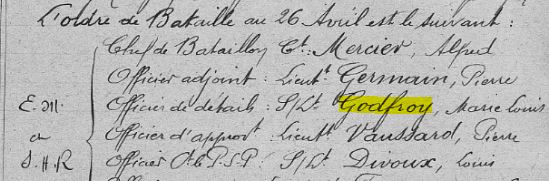 L'ordre de Bataille au 26 Avril est le suivant :
Chef de Bataillon Ct. Mercier, Alfred
Officier adjoint : Lieutt Germain, Pierre
E.M. Officier de détails : S/Lt Godfroy, Marie Louis
et Officier d'approvt : Lieutt Vaussard, Pierre
S.H.R Officier P.S.P : S/Lt Divoux, Louis